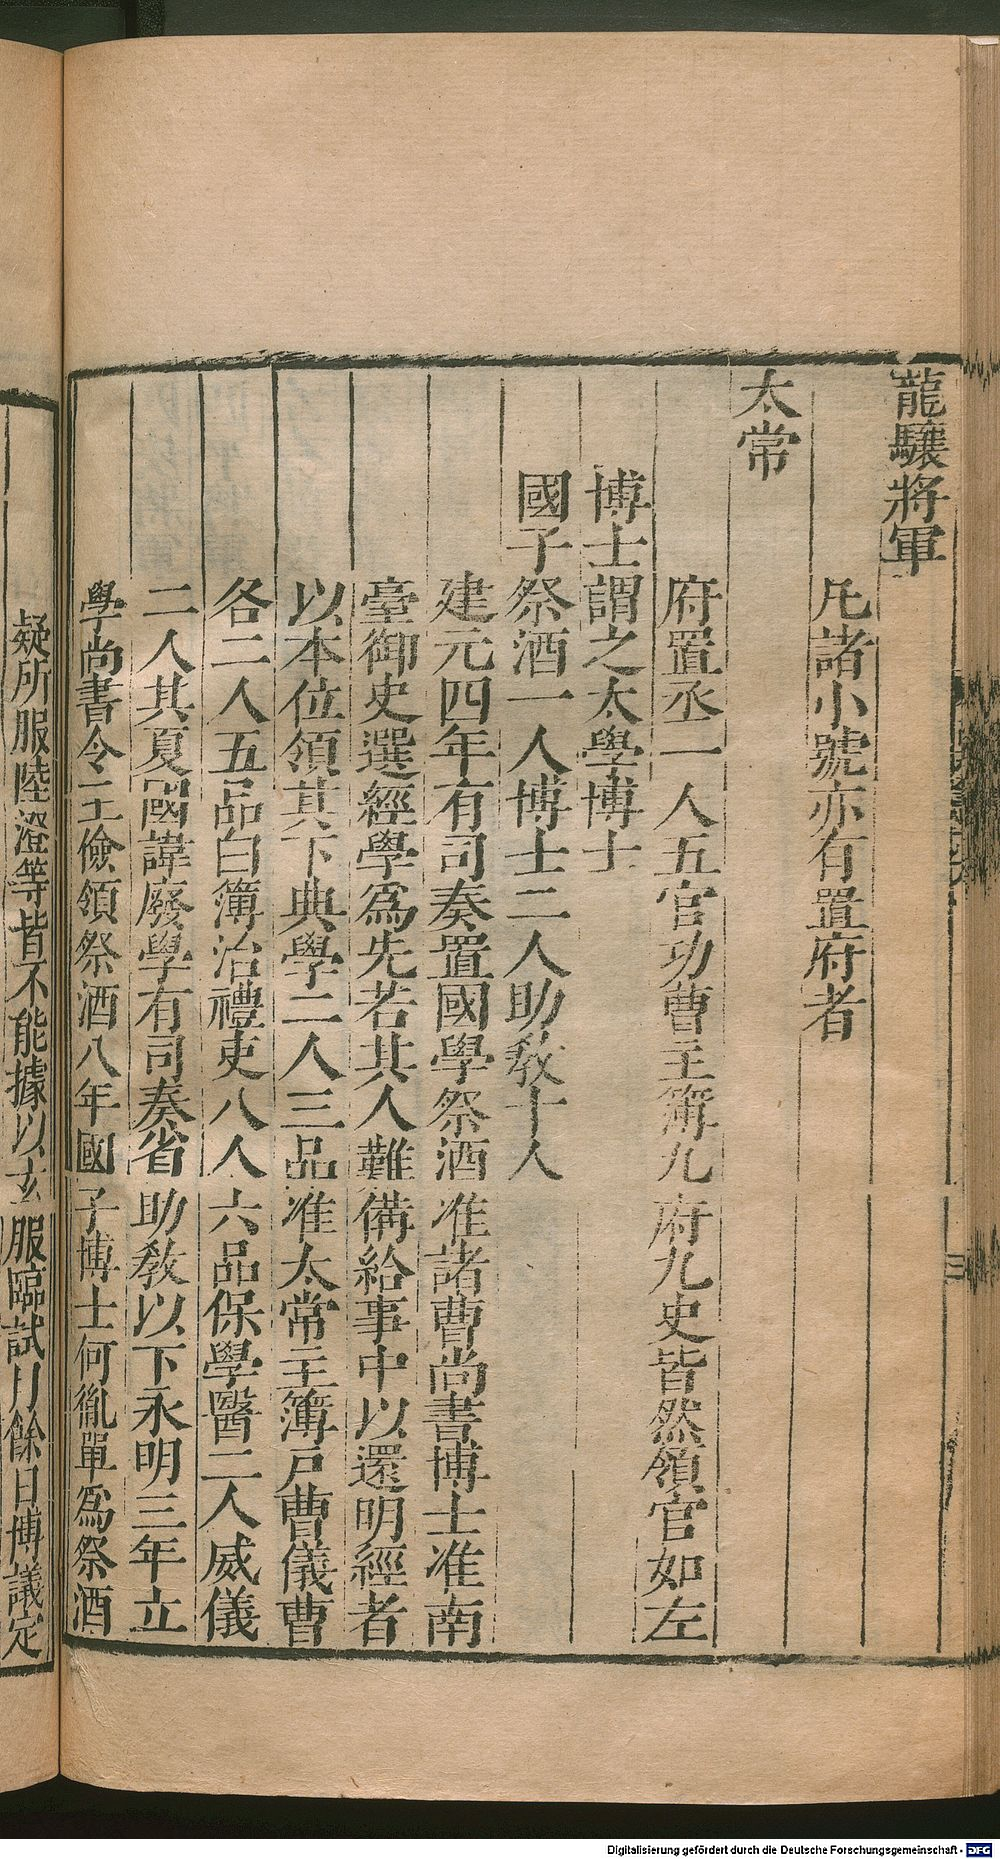 龍驤將軍
凡諸小號亦有置府者
太常
府置丞一人五官功曹主簿九府九史皆然領官如左
博士謂之太學博士
國子祭酒一人博士二人助敎十人
建元四年有司奏置國學祭酒准諸曹尚書博士准南
臺御史選經學爲先若其人難備給事中以還明經者
以本位領其下典學二人三品准太常主簿戸曹儀曹
各二人五品白簿治禮吏八人六品保學醫二人威儀
二人其夏國諱廢學有司奏省助敎以下永明三年立
學尚書令王儉領祭酒八年國子博士何胤單爲祭酒
疑所服陸澄等皆不能據以玄服臨試月餘日博議定
Digitalisierung gefördert durch die Deutsche Forschungsgemeinschaft - DFG